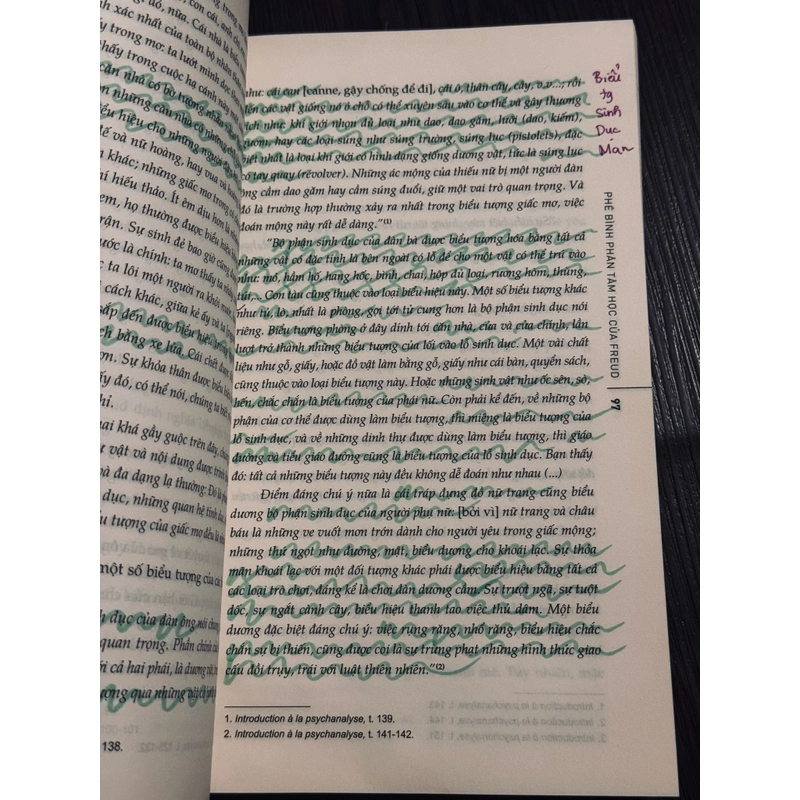 trong
con cái, anh chị
đó, nữa. Cái nhà là biểu
xác nhất của toàn bộ nhân
thấy trong mơ: ta lướt mình dọc
ấy trong cuộc hạ cánh này
căn nhà có bờ tường nhẵn
những căn nhà có những
hiệu cho những người
đế và nữ hoàng, hay vua và
khác; những giấc mơ trong
hí hiếu thảo. Ít êm dịu hơn là
em, họ thường được biểu hiện
rận. Sự sinh đẻ bao giờ cũng
ước là chính: ta mơ thấy ta
c ta lôi một người ra khỏi
cách khác, giữa kẻ ấy và ta
ấp đến được biểu hiện trong
h bằng xe lửa. Cái chết được
n. Sự khỏa thân được biểu
ấy đó, có thể nói, chúng ta biết
hí.
ai khá gầy guộc trên đây, chúng
vật và nội dung được trình
và đa dạng lạ thường: Đó là
dục, những quan hệ tính dục
tượng của giấc mơ đều là
một số biểu tượng của các
h dục của đàn ông nói chung
quan trọng. Phần chính của
ới cả hai phái, là dương vật,
ượng qua những vật có
138.
như: cái can [canne, gậy chống để đi], cái ô, thân cây, cây, v.v...; rồi
đến các vật giống nó ở chỗ có thể xuyên sâu vào cơ thể và gây thương
tích như khí giới nhọn đủ loại như dao, dao găm, lưỡi (dao, kiếm),
gươm, hay các loại súng như súng trường, súng lục (pistolets), đặc
biệt nhất là loại khí giới có hình dạng giống dương vật, tức là súng lục
có tay quay (révolver). Những ác mộng của thiếu nữ bị một người đàn
ông cầm dao găm hay cầm súng đuổi, giữ một vai trò quan trọng. Và
đó là trường hợp thường xảy ra nhất trong biểu tượng giấc mơ, việc
đoán mộng này rất dễ dàng."(1)
"Bộ phận sinh dục của đàn bà được biểu tượng hóa bằng tất cả
những vật có đặc tính là bên ngoài có lỗ để cho một vật có thể trú vào
như: mỏ, hầm hố, hang hốc, bình, chai, hộp đủ loại, rương hòm, thùng,
túi,... Con tàu cũng thuộc vào loại biểu hiện này. Một số biểu tượng khác
như tủ, lò, nhất là phòng, gợi tới tử cung hơn là bộ phận sinh dục nói
riêng. Biểu tượng phòng ở đây dính tới căn nhà, cửa và cửa chính, lần
lượt trở thành những biểu tượng của lối vào lỗ sinh dục. Một vài chất
liệu như gỗ, giấy, hoặc đồ vật làm bằng gỗ, giấy như cái bàn, quyển sách,
cũng thuộc vào loại biểu tượng này. Hoặc những sinh vật như ốc sên, sò,
hến, chắc chắn là biểu tượng của phái nữ. Còn phải kể đến, về những bộ
phận của cơ thể được dùng làm biểu tượng, thì miệng là biểu tượng của
lỗ sinh dục, và về những dinh thự được dùng làm biểu tượng, thì giáo
đường và tiểu giáo đường cũng là biểu tượng của lỗ sinh dục. Bạn thấy
đó: tất cả những biểu tượng này đều không dễ đoán như nhau (...)
Điểm đáng chú ý nữa là cái tráp đựng đồ nữ trang cũng biểu
dương bộ phận sinh dục của người phụ nữ: [bởi vì] nữ trang và châu
báu là những ve vuốt mơn trớn dành cho người yêu trong giấc mộng;
những thứ ngọt như đường, mật, biểu dương cho khoái lạc. Sự thỏa
mãn khoái lạc với một đối tượng khác phái được biểu hiện bằng tất cả
các loại trò chơi, đáng kể là chơi đàn dương cầm. Sự trượt ngã, sự tuột
dốc, sự ngắt cành cây, biểu hiện thanh tao việc thủ dâm. Một biểu
dương đặc biệt đáng chú ý: việc rụng răng, nhổ răng, biểu hiện chắc
chắn sự bị thiến, cũng được coi là sự trừng phạt những hình thức giao
cấu đồi trụy, trái với luật thiên nhiên."(2)
1. Introduction à la psychanalyse, t. 139.
2. Introduction à la psychanalyse, t. 141-142.
Biểu
tg
Sinh
Dục
Nam
PHÊ BÌNH PHÂN TÂM HỌC CỦA FREUD
97